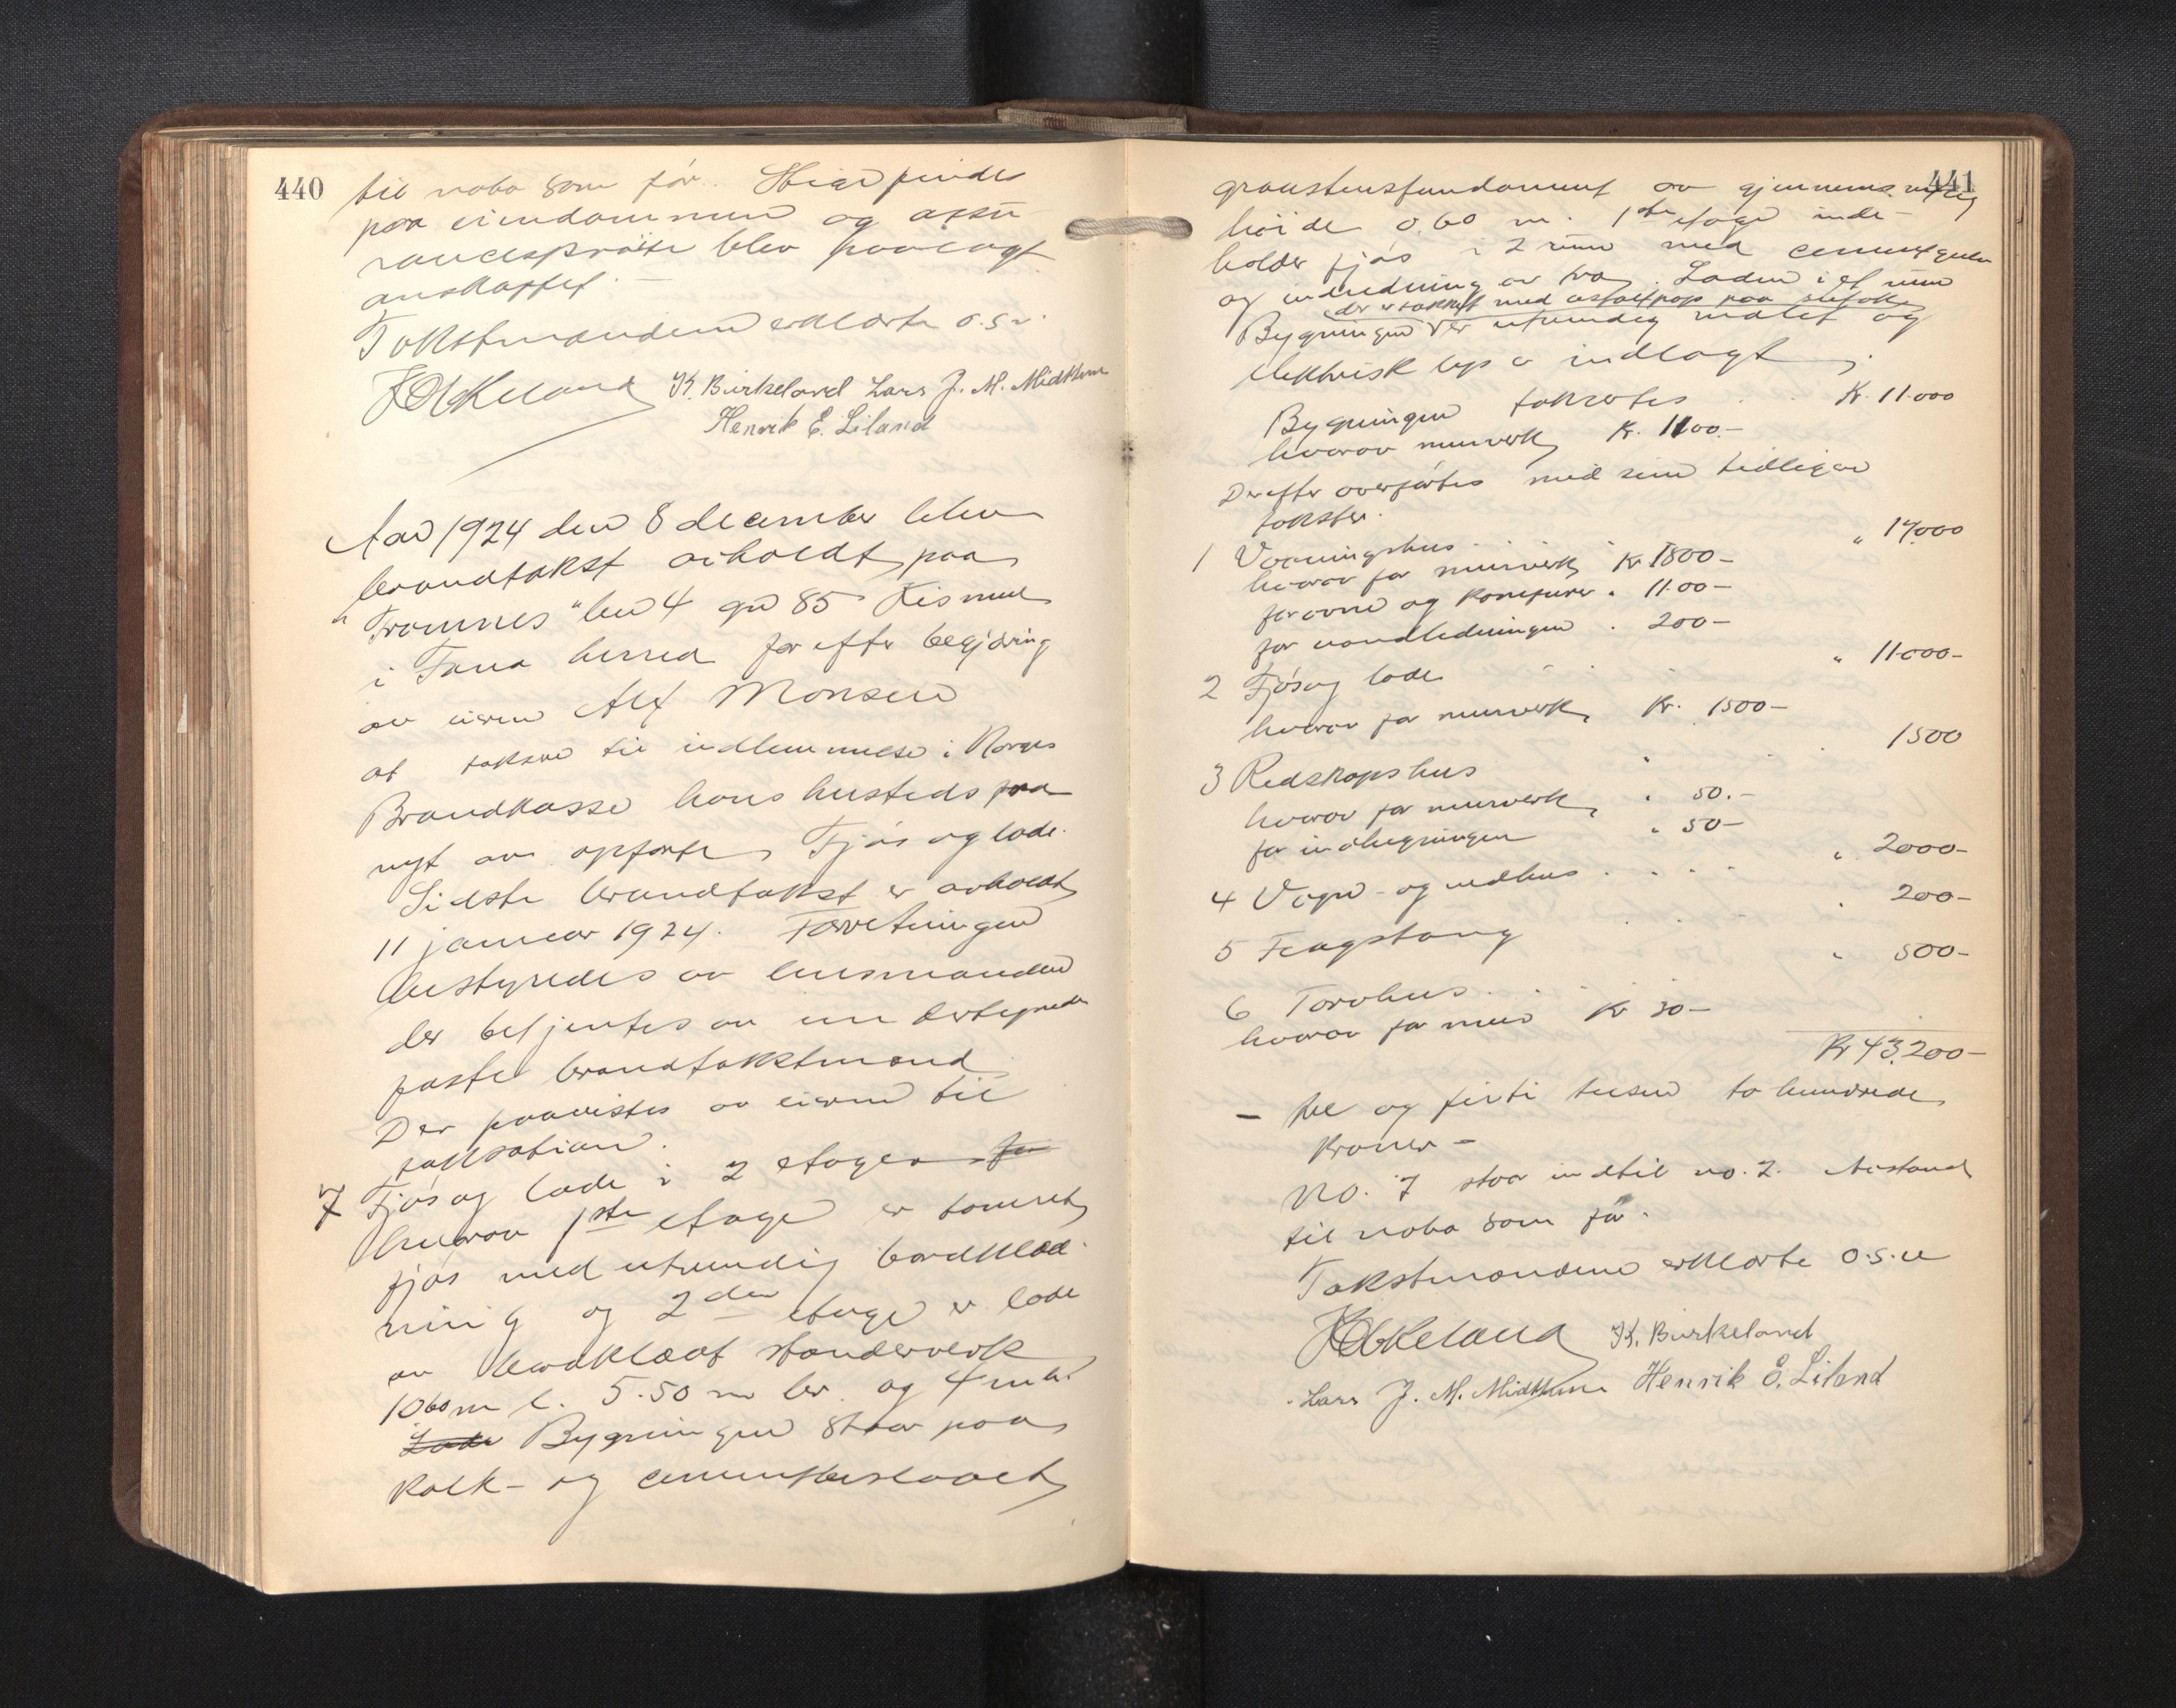 440
til nabo som før. Stige findes
paa eiendommen og assu-
rancesprøite blev paalagt
anskaffet. —
Takstmændene erklærte o.s.v.
K. Birkeland Lars J. M. Midttun
Henrik E. Liland
Aar 1924 den 8 december blev
brandtakst avholdt paa
"Tromnes" bn 4 gn 85
i Fana herred for efter begjæring
av eieren Alf Monsen
at taksere til indlemmelse i Norges
Brandkasse hans husteds paa
nyt av opførte Fjøs og lade.
Sidste brandtakst er avholdt
11 januar 1924. Forretningen
bestyredes av lensmanden
der betjentes av undertegnede
faste brandtakstmænd
Der paavistes av eieren til
taksation.
7 Fjøs og lade i 2 etager
hvorav 1ste etage er tømret
fjøs med utvendig bordklæd-
ning og 2den etage er lade
av bordklædt stænderverk
10.60 m l. 5.50 m br. og 4 m h.
Lade Bygningen staar paa
kalk- og cementbeslaaet
441
graastensfundament av gjennemsnitlig
høide 0.60 m. 1ste etage inde-
holder fjøs i 2 rum med cementgulv
og indredning av træ. Laden i et rum
der er tækket med asfaltpap paa
Bygningen er utvendig malet og
elektrisk lys er indlagt.
Bygningen takseres . . Kr. 11.000
hvorav murverk Kr. 1100.-
Derefter overførtes med sine tidligere
takster.
1 Vaaningshus . . . " 17000
hvorav for murverk Kr 1800-
for ovne og komfurer " 1100-
for vandledningen " 200-
2 Fjøs og lade . . . " 11000-
hvorav for murverk Kr. 1500-
3 Redskapshus " . 1500
hvorav for murverk " 50.-
for indbygningen " 50-
4 Vogn- og vedhus . . . . " 2000-
5 Flagstang . . . " 200-
6 Torvhus . . . " 500-
hvorav for mur Kr 30-
Kr 43.200-
- tre og førti tusen to hundrede
kroner -
No. 7 staar indtil no. 2. Avstand
til nabo som før.
Takstmændene erklærte o.s.v
K. Birkeland
Lars J. M. Midttun Henrik E. Liland